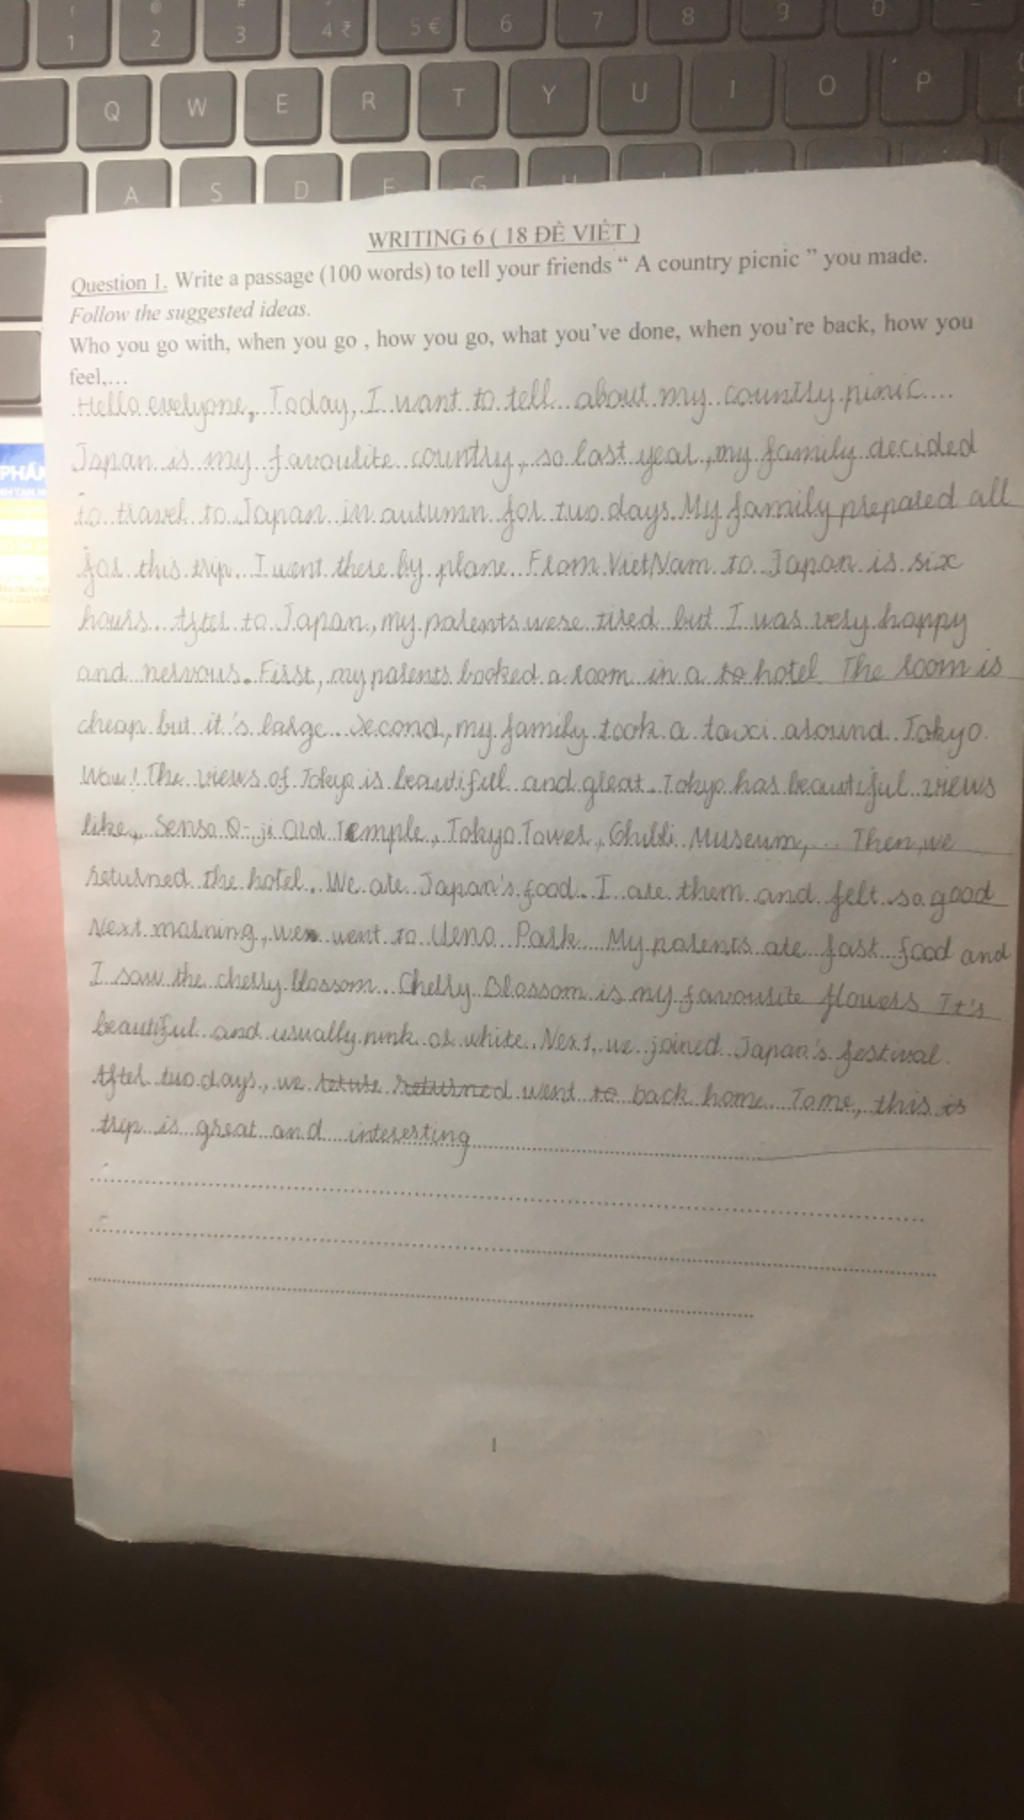 1 2 3 4 ₹ 5 € 6 7 8 9 0
Q W E R T Y U I O P
A S D F G H
PHẨM
WRITING 6 ( 18 ĐỀ VIẾT )
Question 1. Write a passage (100 words) to tell your friends “ A country picnic ” you made.
Follow the suggested ideas.
Who you go with, when you go , how you go, what you’ve done, when you’re back, how you
feel,…
Hello everyone, Today, I want to tell about my country picnic....
Japan is my favourite country, so last year, my family decided
to travel to Japan in autumn for two days. My family prepared all
for this trip. I went there by plane. From VietNam to Japan is six
hours. After to Japan, my parents were tired but I was very happy
and nervous. First, my parents booked a room in a to hotel. The room is
cheap but it's large. Second, my family took a taxi around Tokyo.
Wow! The views of Tokyo is beautiful and great. Tokyo has beautiful views
like, Senso O-ji Old Temple, Tokyo Tower, Ghibli Museum,... Then, we
returned the hotel. We ate Japan's food. I ate them and felt so good
Next morning, we went to Ueno Park. My parents ate fast food and
I saw the cherry blossom. Cherry Blossom is my favourite flowers It's
beautiful and usually pink or white. Next, we joined Japan's festival.
After two days, we returned went to back home. To me, this is
trip is great and interesting
1